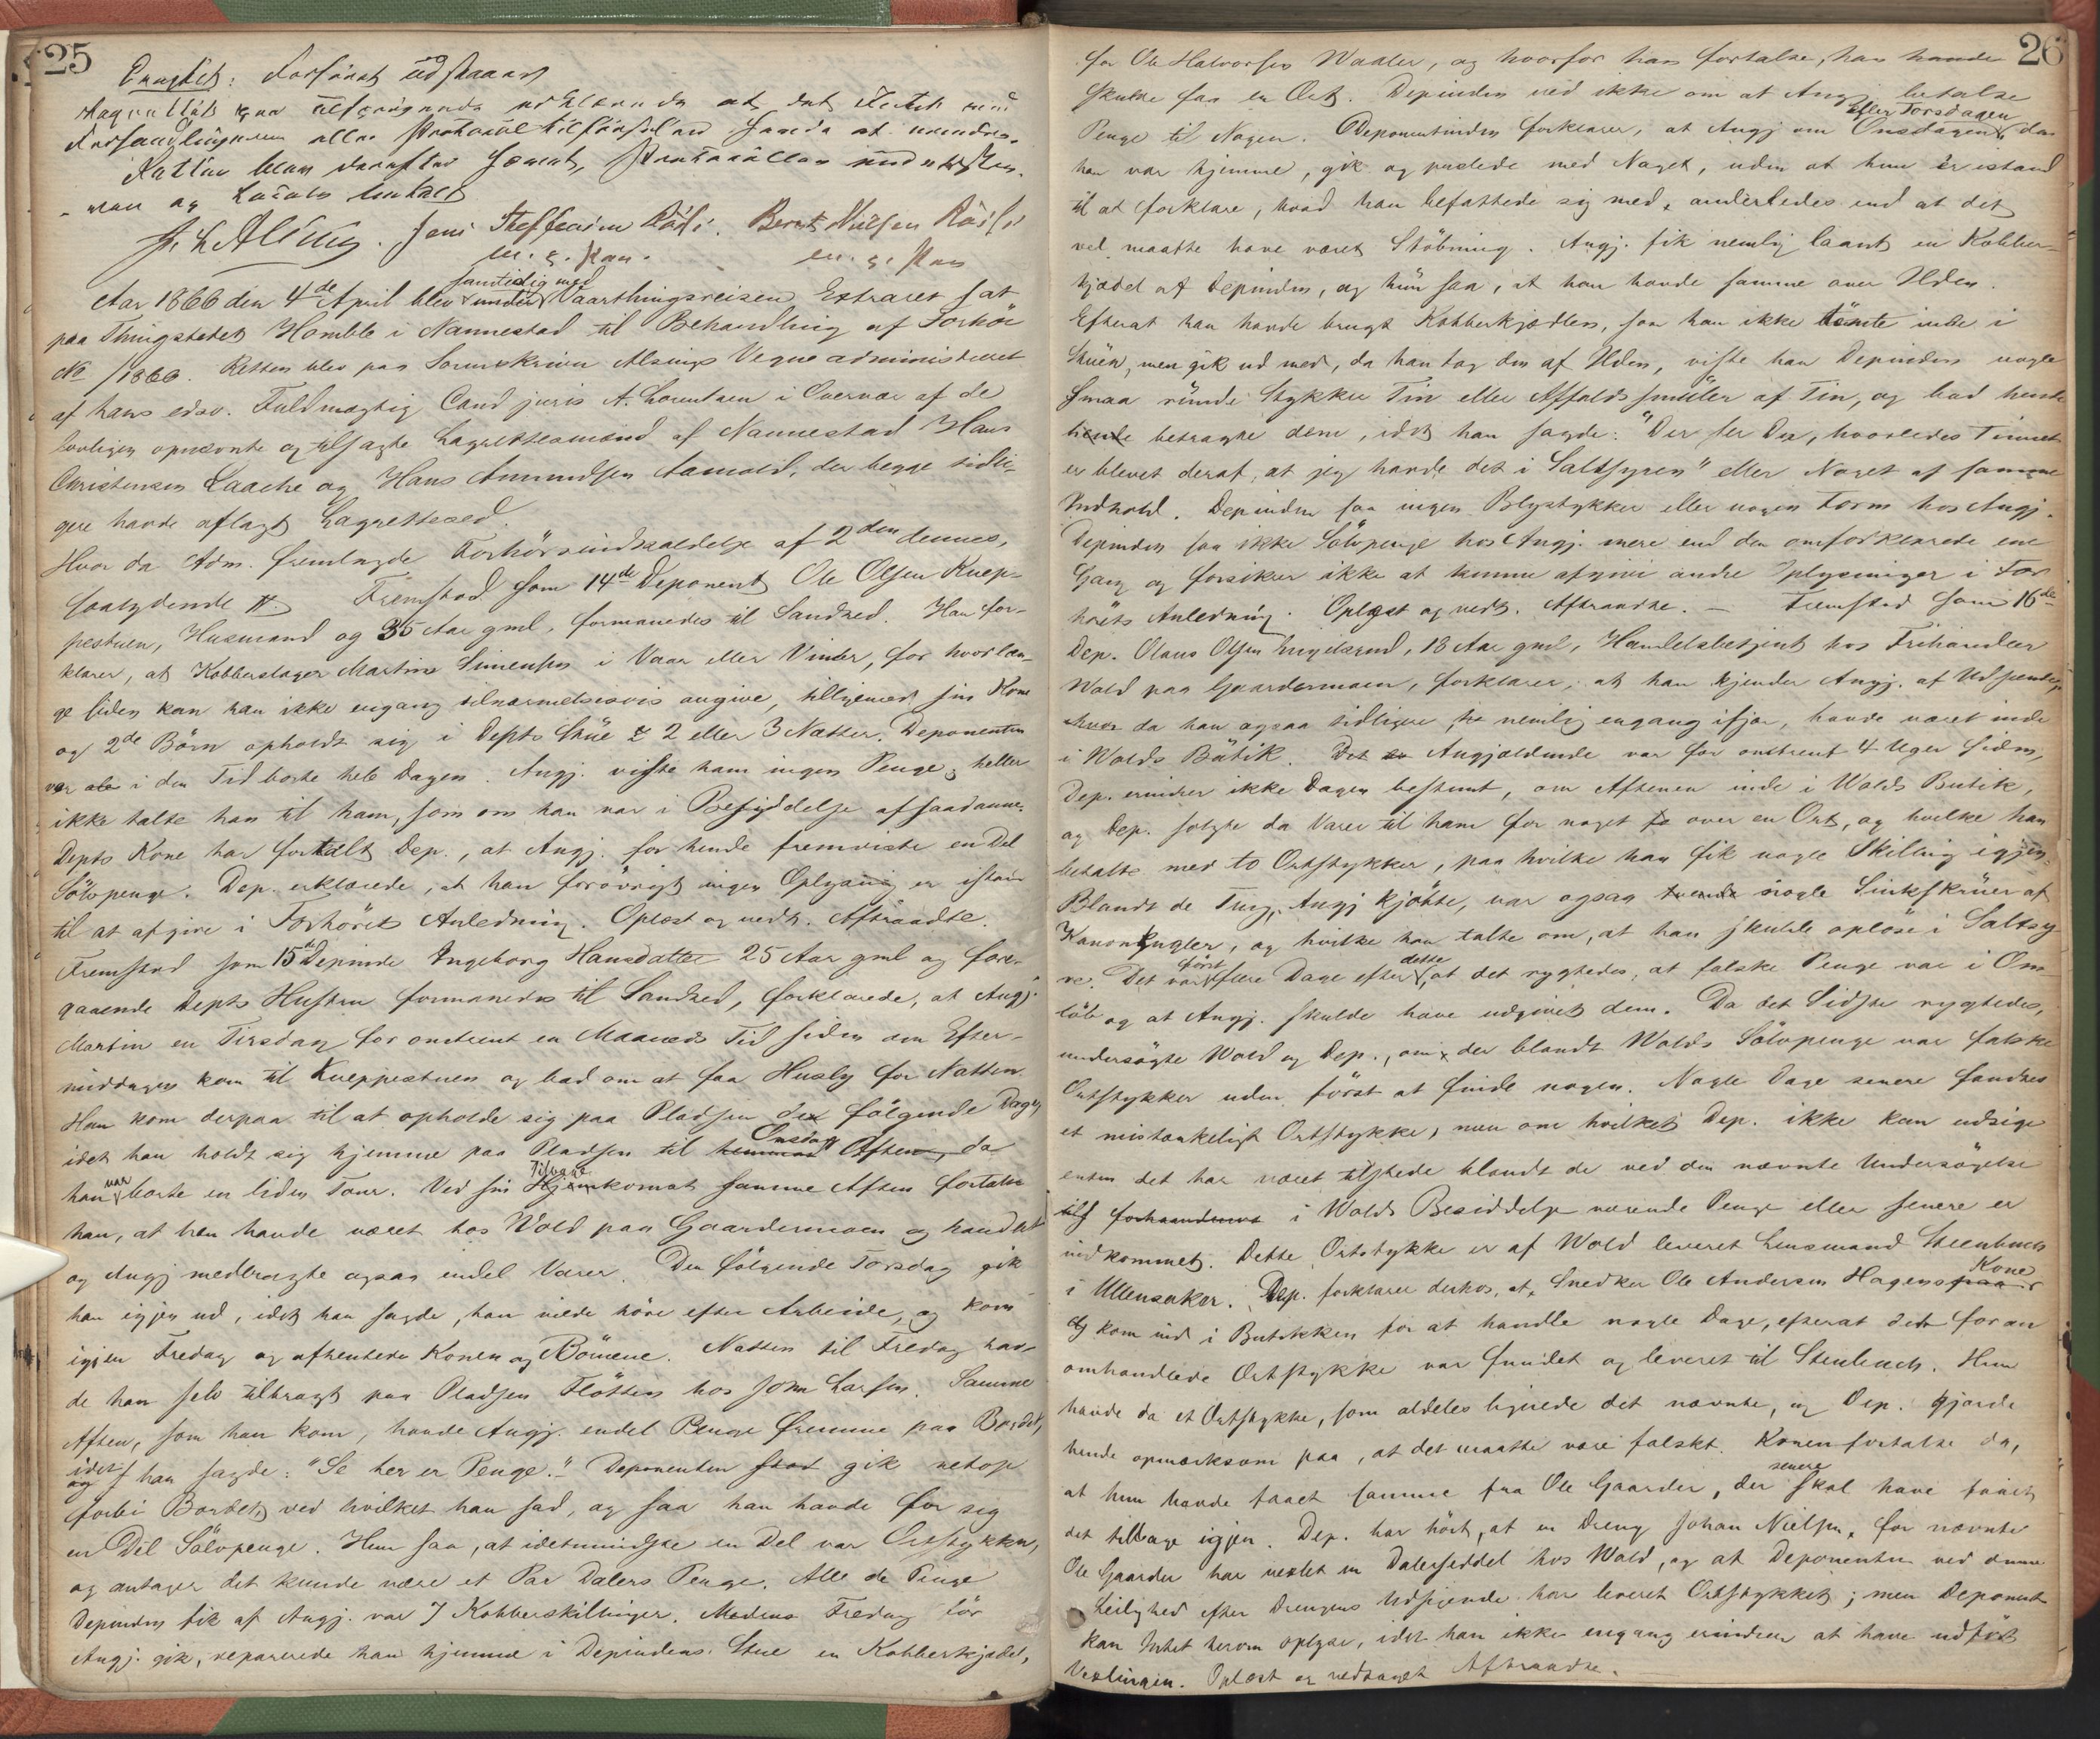 25
Eragtet: Forhöret udstaaer
Laugrettet paa tilspörgende erklærede at det Intet med
Forhandlingerne eller Protocoltilförselen havde at erindre.
Retten blev derefter hævet, Protocollen underskre-
ven og Lacten lukket
J. L. Alsing. Jens Steffensen Röise. Bernt Nielsen Röise
m. p. Pen. m. p. Pen
Aar 1866 den 4de April blev samtidig med under Vaarthingsreisen Extraret sat
paa Thingstedet Homble i Nannestad til Behandling af Forhör
No /1866. Retten blev paa Sorenskriver Alsings Vegne administreret
af hans edsv. Fuldmægtig Cand juris A. Lorentzen i Overvær af de
lovligen opnævnte og tilsagte Lagrettesmænd af Nannestad Hans
Christensen Laache og Hans Amundsen Aamold, der begge tidli-
gere havde aflagt Lagretteed.
Hvor da Adm. fremlagde Forhörsindkaldelse af 2den dennes,
saalydende #. Fremstod som 14de Deponent Ole Olsen Knep-
pestuen, Husmand og 35 Aar gml, formanedes til Sandhed. Han for-
klarer, at Kobberslager Martin Simensen i Vaar eller Vinter, for hvor læn-
ge siden kan han ikke engang tilnærmelsesvis angive, tilligemed sin Kone
og 2de Börn opholdt sig i Depts Stue i 2 eller 3 Nætter. Deponenten
var ale i den Tid borte hele Dagen. Angj. viste ham ingen Penge, heller
ikke talte han til ham, som om han var i Besiddelse af saadanne.
Depts Kone har fortalt Dep., at Angj. for hende fremviste en Del
Sölvpenge. Dep. erklærede, at han forövrigt ingen Oplysning er istand
til at afgive i Forhörets Anledning. Oplæst og vedt. Aftraadte.
Fremstod som 15de Depinde Ingeborg Hansdatter 25 Aar gml og fore-
gaaende Depts Hustru formanedes til Sandhed, forklarede, at Angj.
Martin en Tirsdag for omtrent en Maaneds Tid siden om Efter-
middagen kom til Kneppestuen og bad om at faa Husly for Natten.
Han kom derpaa til at opholde sig paa Pladsen den fölgende Dag,
idet han holdt sig hjemme paa Pladsen til Onsdag Aften, da
han var borte en liden Tour. Ved sin Tilbagekomst samme Aften fortalte
han, at han havde været hos Wold paa Gaardermoen og handlet
og Angj medbragte ogsaa endel Varer. Den fölgende Torsdag gik
han igjen ud, idet han sagde, han vilde höre efter Arbeide, og kom
igjen Fredag og afhentede Konen og Börnene. Natten til Fredag hav-
de han selv tilbragt paa Pladsen Flötten hos John Larsen. Samme
Aften, som han kom, havde Angj. endel Penge fremme paa Bordet,
idet og han sagde: "Se her er Penge." Deponenten stod gik netop
forbi Bordet, ved hvilket han sad, og saa han havde for sig
en Del Sölvpenge. Hun saa, at idetmindste en Del var Ortstykker,
og antager det kunde være et Par Dalers Penge. Alle de Penge
Depinden fik af Angj. var 7 Kobberskillinger. Medens Fredag för
Angj. gik, reparerede han hjemme i Depindens Stue en Kobberkjedel,
26
for Ole Halvorsen Waaler, og hvorfor han fortalte, han havde
skulde faa en Ort. Depinden ved ikke om at Angj. betalte
Penge til Nogen. Deponentinden forklarer, at Angj om Onsdagen eller Torsdagen da
han var hjemme, gik og puslede med Noget, uden at hun er istand
til at forklare, hvad han befattede sig med, anderledes end at det
vel maatte have været Stöbning. Angj. fik nemlig laant en Kobber-
kjedel af Depinden, og hun saa, at han havde samme over Ilden.
Efterat han havde brugt Kobberkjedlen, som han ikke tömte inde i
Stuen, men gik ud med, da han tog den af Ilden, viste han Depinden nogle
smaa runde Stykker Tin eller Affaldssmuler af Tin, og bad hende
hende betragte dem, idet han sagde: "Der ser Du, hvorledes Tinnet
er blevet deraf, at jeg havde det i Saltsyren" eller Noget af samme
Indhold. Depinden saa ingen Blystykker eller nogen Form hos Angj.
Depinden saa ikke Sölvpenge hos Angj. mere end den omforklarede ene
Gang og forsikrer ikke at kunne afgive andre Oplysninger i For-
hörets Anledning. Oplæst og vedt. Aftraadte. — Fremstod som 16de
Dep. Olaus Olsen Engelsrud, 18 Aar gml, Handelsbetjent hos Frihandler
Wold paa Gaardermoen, forklarer, at han kjender Angj. af Udseende
hvor da han ogsaa tidligere, nemlig engang ifjor, havde været inde
i Wolds Butik. Det er Angjældende var for omtrent 4 Uger siden,
Dep. erindrer ikke Dagen bestemt, om Aftenen inde i Wolds Butik,
og Dep. solgte da Varer til ham for noget over en Ort, og hvilke han
betalte med to Ortstykker, paa hvilke han fik nogle Skilling igjen.
Blandt de Ting, Angj kjöbte, var ogsaa tvende nogle Sinkskruer af
Kanonkugler, og hvilke han talte om, at han skulde oplöse i Saltsy-
re. Det var först flere Dage efter dette, at det rygtedes, at falske Penge var i Om-
löb og at Angj. skulde have udgivet dem. Da det Sidste rygtedes,
undersögte Wold og Dep., om der blandt Wolds Sölvpenge var falske
Ortstykker uden först at finde nogen. Nogle Dage senere fandtes
et mistænkeligt Ortstykke, men om hvilket Dep. ikke kan udsige
enten det har været tilstede blandt de ved den nævnte Undersögelse
forhaanden i Wolds Besiddelse værende Penge eller senere er
indkommet. Dette Ortstykke er af Wold leveret Lensmand Steenbuch
i Ullensaker. Dep. forklarer derhos, at Snedker Ole Andersen Hagens Kone
kom ind i Butikken for at handle nogle Dage, efterat det foran
omhandlede Ortstykke var fundet og leveret til Stenbuch. Hun
havde da et Ortstykke, som aldeles lignede det nævnte, og Dep. gjorde
hende opmærksom paa, at det maatte være falskt. Konen fortalte da,
at hun havde faaet samme fra Ole Gaarder, der senere skal have faaet
det tilbage igjen. Dep. har hört, at en Dreng Johan Nielsen, for nævnte
Ole Gaarder har vexlet en Dalerseddel hos Wold, og at Deponenten ved denne
Leilighed efter Drengens Udsigende har leveret Ortstykket; men Deponent
kan Intet herom oplyse, idet han ikke engang erindrer at have udfört
Vexlingen. Oplæst og vedtaget Aftraadte.